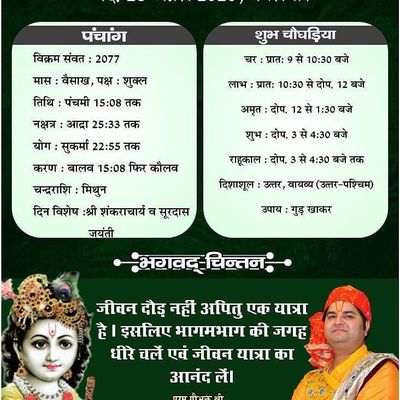 पंचांग
विक्रम संवत : 2077
मास : वैसाख, पक्ष : शुक्ल
तिथि : पंचमी 15:08 तक
नक्षत्र : आद्रा 25:33 तक
योग : सुकर्मा 22:55 तक
करण : बालव 15:08 फिर कौलव
चन्द्रराशि : मिथुन
दिन विशेष :श्री शंकराचार्य व सूरदास
जयंती
शुभ चौघड़िया
चर : प्रात: 9 से 10:30 बजे
लाभ : प्रात: 10:30 से दोप. 12 बजे
अमृत : दोप. 12 से 1:30 बजे
शुभ : दोप. 3 से 4:30 बजे
राहूकाल : दोप. 3 से 4:30 बजे तक
दिशाशूल : उत्तर, वायव्य (उत्तर-पश्चिम)
उपाय : गुड़ खाकर
भगवद्-चिन्तन
जीवन दौड़ नहीं अपितु एक यात्रा
है । इसलिए भागमभाग की जगह
धीरे चलें एवं जीवन यात्रा का
आनंद लें।